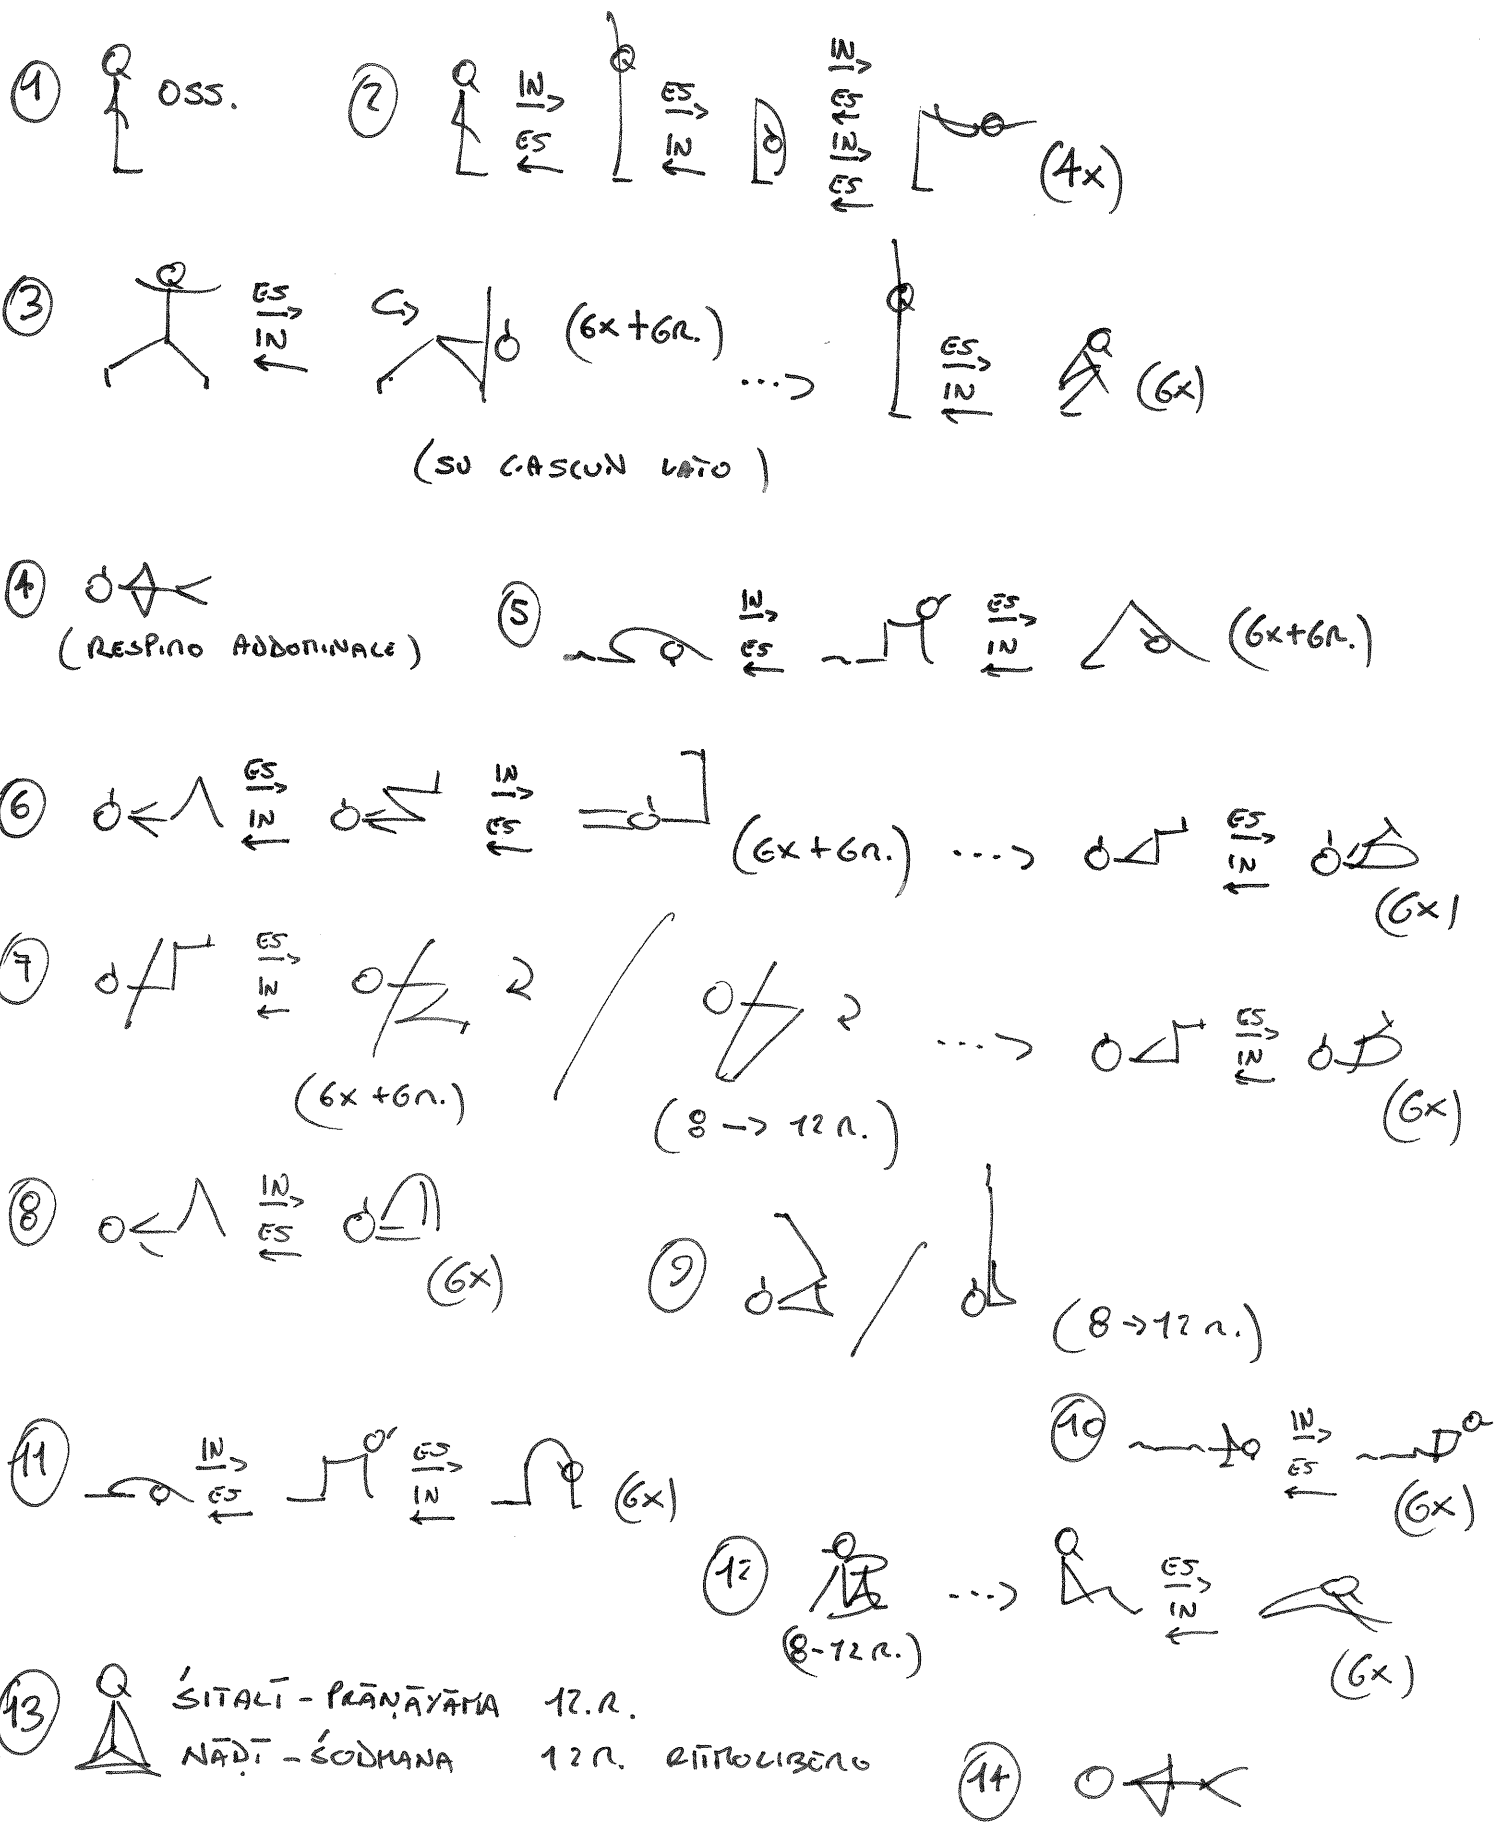 1 OSS. 2 IN ES ES IN IN ES IN ES (4x)
3 ES IN (6x+6R.) ...> ES IN (6x)
(SU CIASCUN LATO)
4 (RESPIRO ADDOMINALE) 5 IN ES ES IN (6x+6R.)
6 ES IN IN ES (6x+6R.) ...> ES IN (6x)
7 ES IN (6x+6R.) / (8 -> 12 R.) ...> ES IN (6x)
8 IN ES (6x) 9 / (8->12 R.)
10 IN ES (6x)
11 IN ES ES IN (6x)
12 (8-12 R.) ...> ES IN (6x)
13 ŚITALĪ - PRĀṆĀYĀMA 12.R.
NĀḌĪ - ŚODHANA 12 R. RITMO LIBERO
14